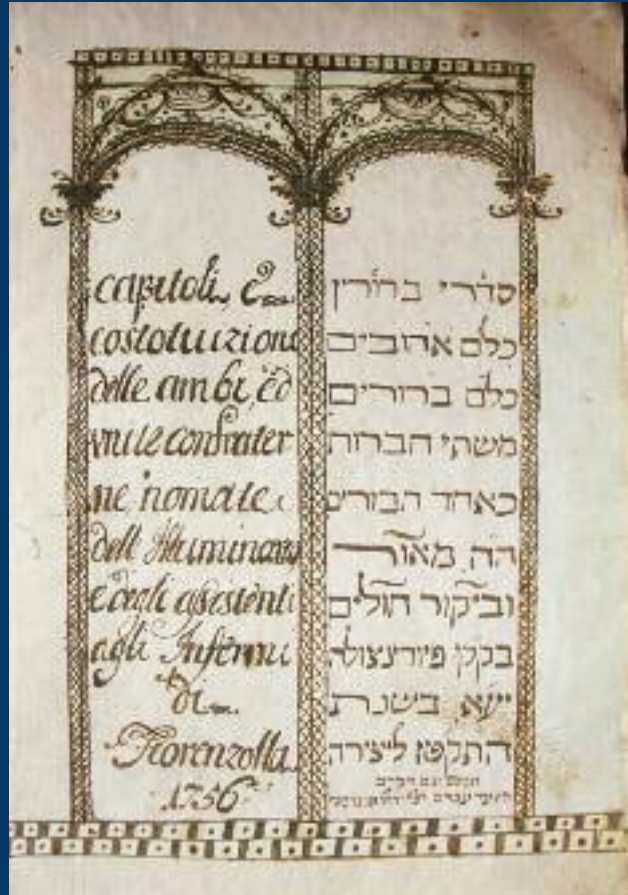 capitoli, e
costotuizione
delle ambi, ed
unite confrater
ne nomate
dell Illuminare
e degli assistenti
agli Infermi
di
Fiorenzolla
1756
סדרי ברורין
כלם אהובים
כלם ברורים
משתי חברות
כאחד חבורים
הה מאור
וביקור חולים
בקק פיורינצולה
יע״א בשנת
התקטז ליצירה